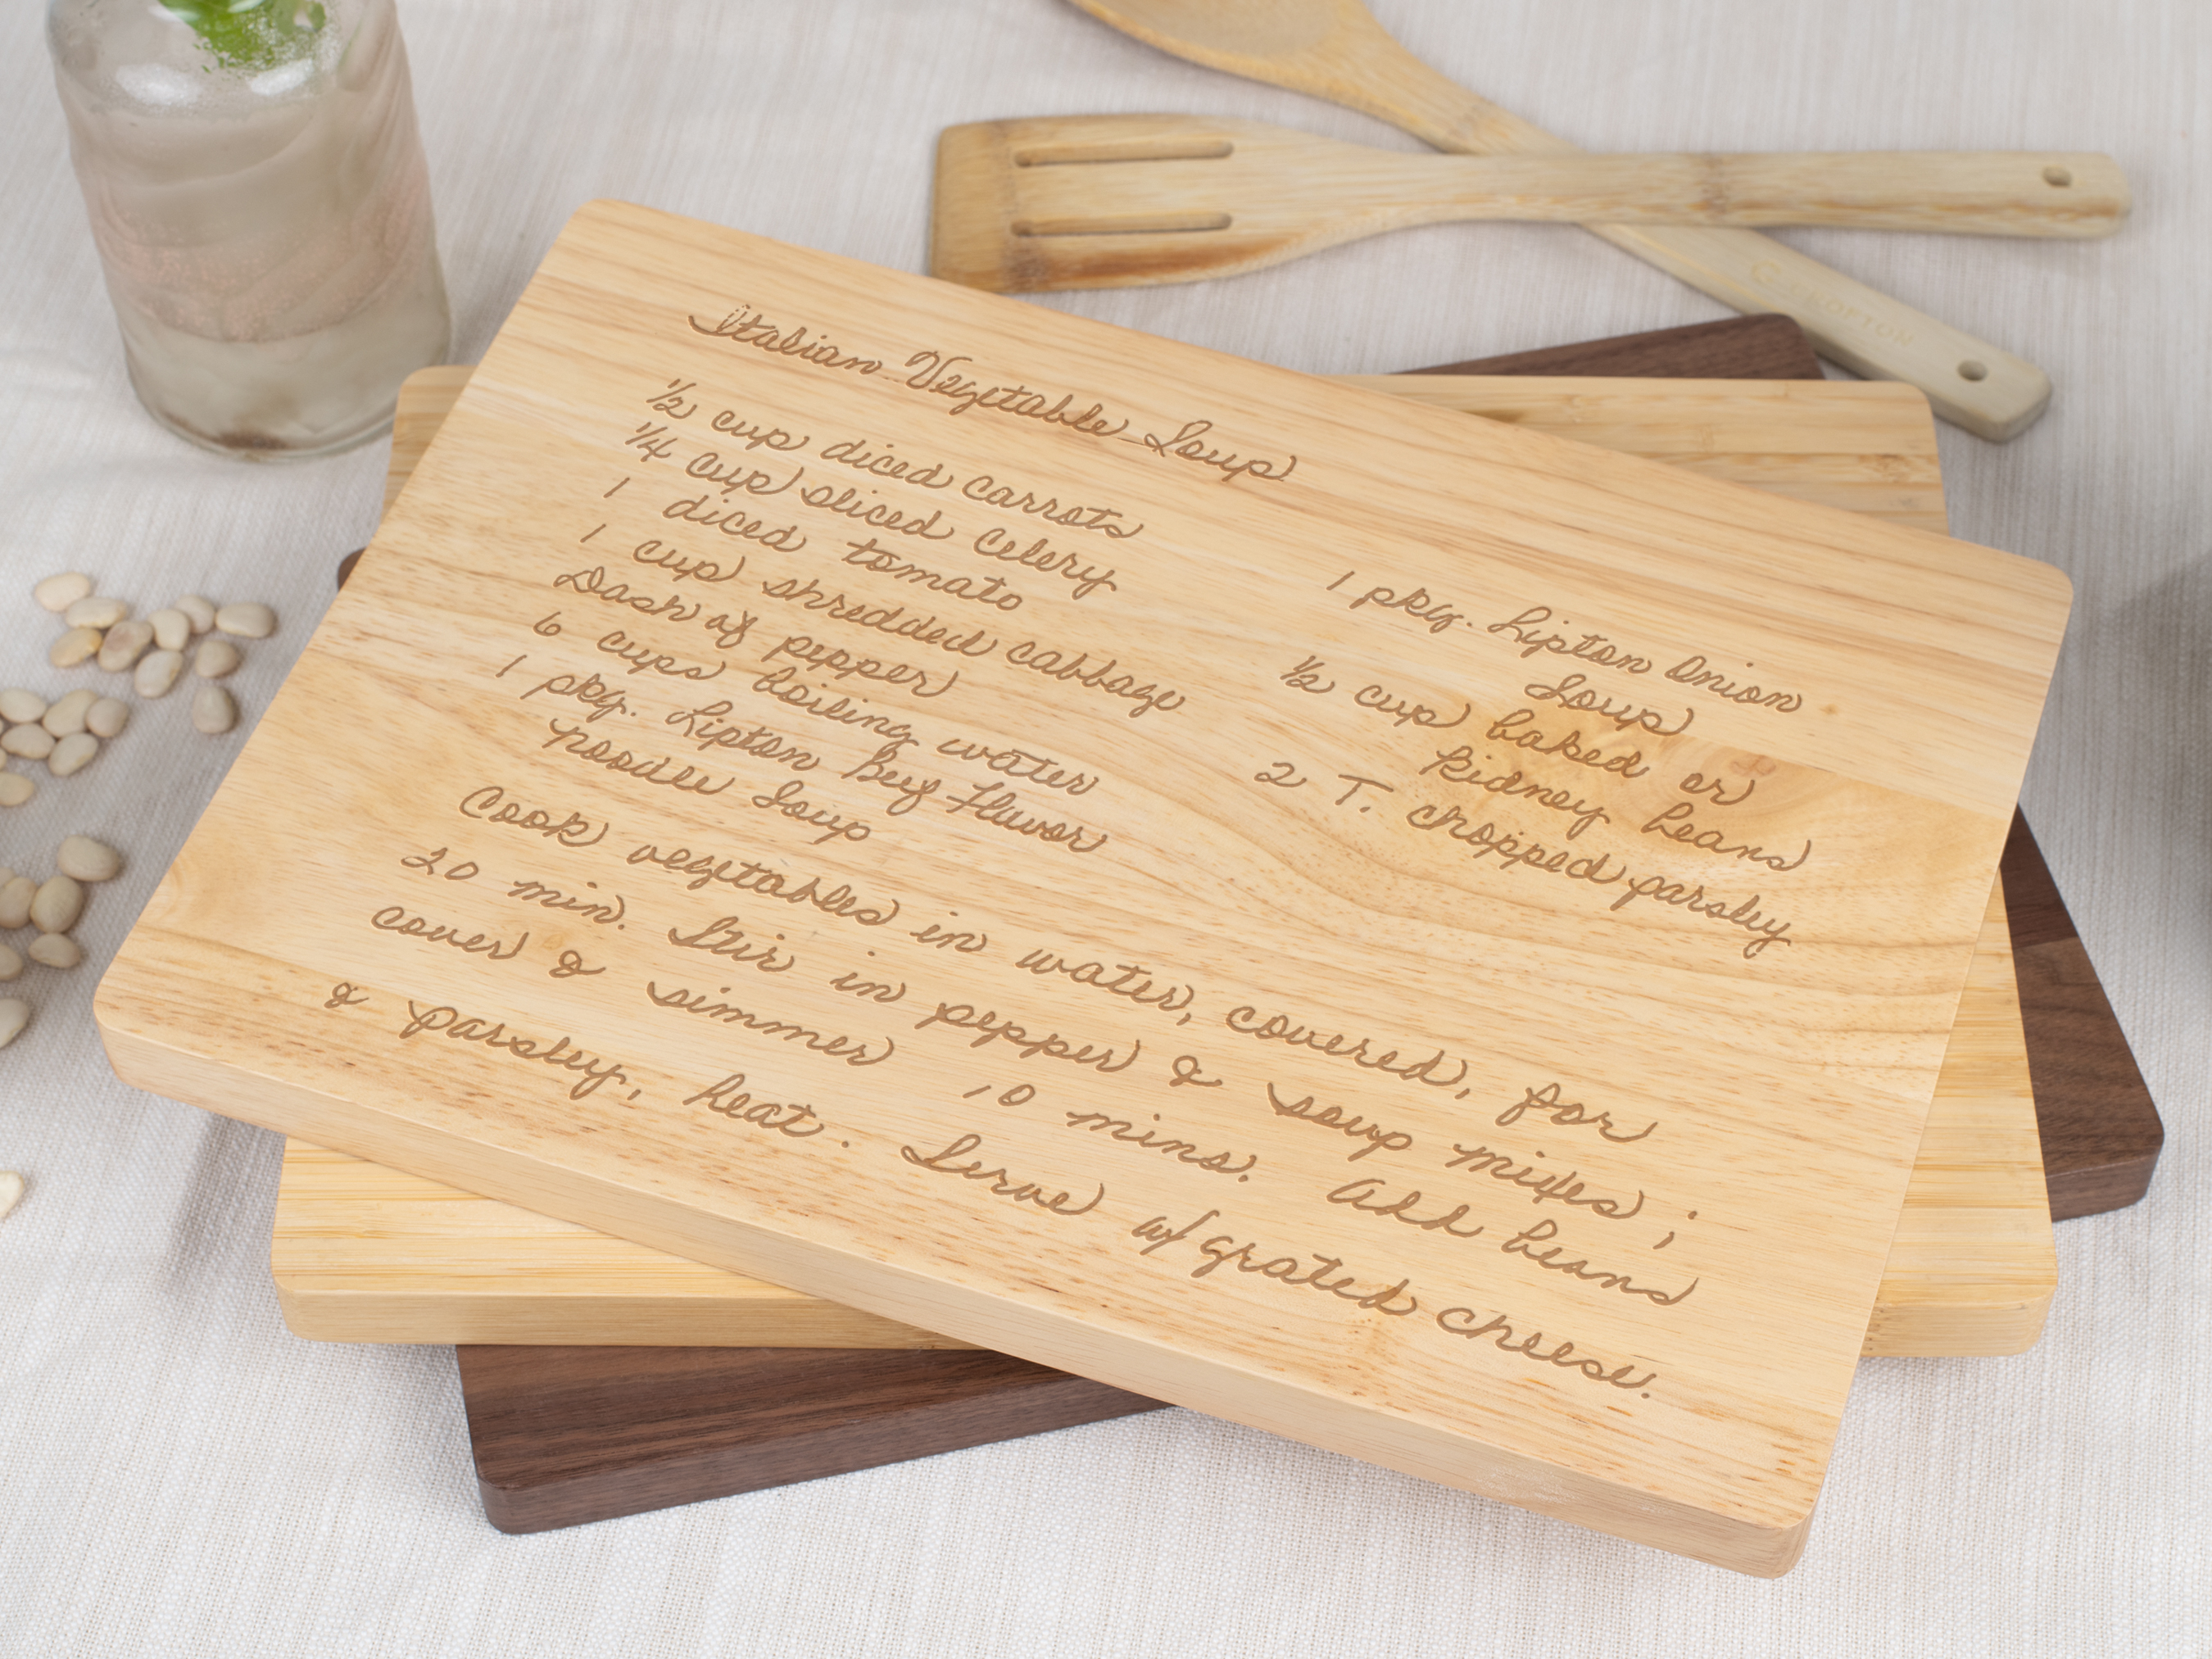 Italian Vegetable Soup
1/2 cup diced carrots
1/4 cup sliced celery
1 diced tomato
1 cup shredded cabbage
Dash of pepper
6 cups boiling water
1 pkg. Lipton Beef Flavor
noodle Soup
1 pkg. Lipton Onion
Soup
1/2 cup baked or
kidney beans
2 T. chopped parsley
Cook vegetables in water, covered, for
20 min. Stir in pepper & soup mixes;
cover & simmer 10 mins. Add beans
& parsley, heat. Serve w/ grated cheese.